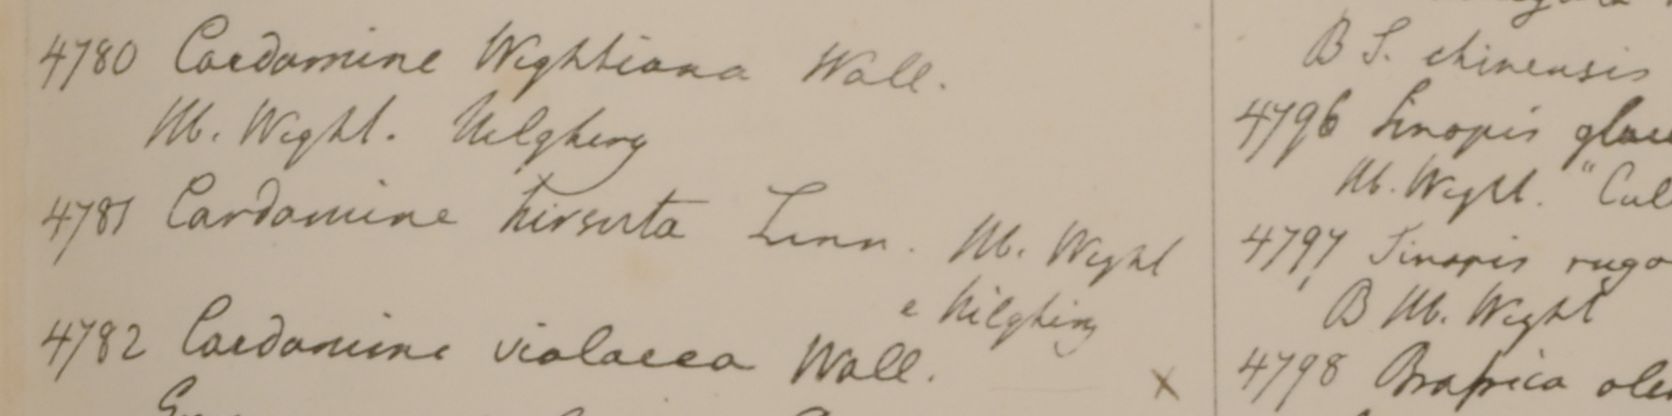 4780 Cardamine Wightiana Wall.
Hb. Wight. Nilghiry
4781 Cardamine hirsuta Linn. Hb. Wight
e Nilghiry
4782 Cardamine violacea Wall.
B S. chinensis
4796 Sinapis glau
Hb. Wight. "Cul
4797 Sinapis rugo
B Hb. Wight
4798 Brassica ole